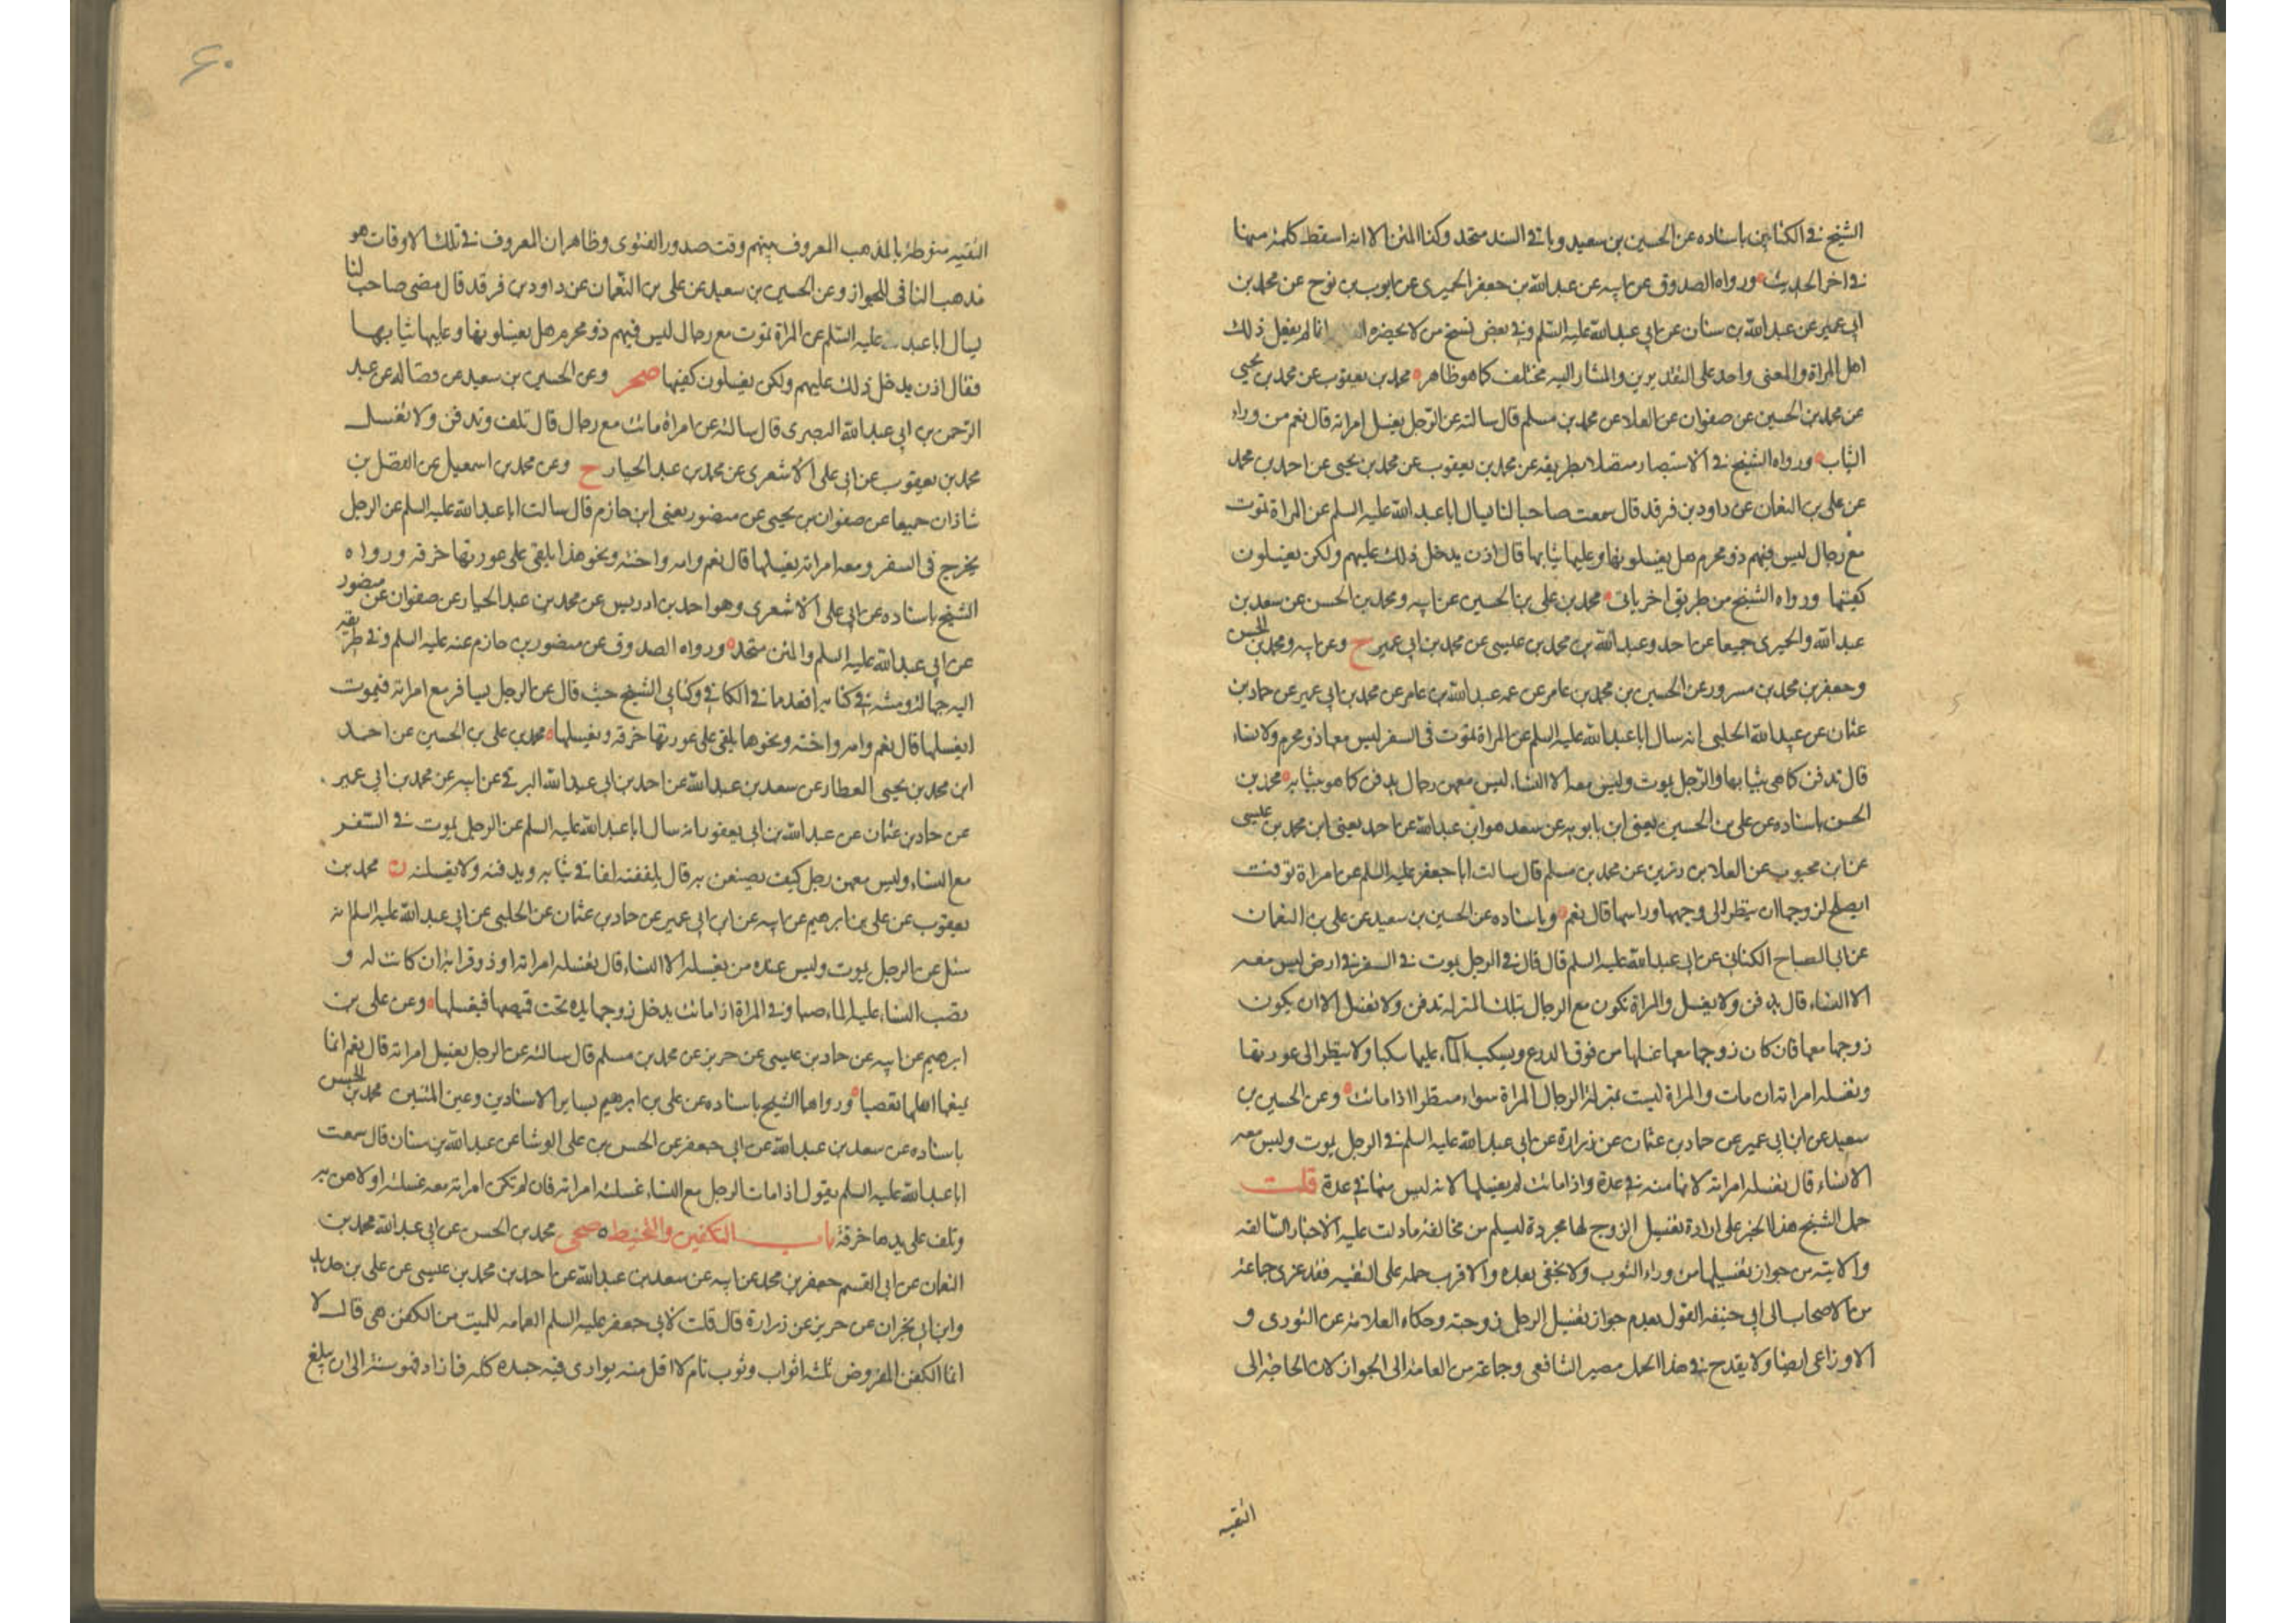 الشيخ في الكتابين باسناده عن الحسين بن سعيد وباقي السند متحد وكذا المتن الا انه اسقط كلمة منها
في اخر الحديث ورواه الصدوق عن ابيه عن عبد الله بن جعفر الحميرى عن ايوب بن نوح عن محمد بن
ابي عمير عن عبد الله بن سنان عن ابي عبد الله عليه السلم وفي بعض نسخ من لا يحضره انما لم يفعل ذلك
اهل المراة والمعنى واحد على التقديرين والمشار اليه مختلف كما هو ظاهر محمد بن يعقوب عن محمد بن يحيى
عن محمد بن الحسين عن صفوان عن العلا عن محمد بن مسلم قال سالته عن الرجل يغسل امراته قال نعم من وراء
الثياب ورواه الشيخ في الاستبصار متصلا بطريقه عن محمد بن يعقوب عن محمد بن يحيى عن احمد بن محمد
عن على بن النعمان عن داود بن فرقد قال سمعت صاحبا لنا يسال ابا عبد الله عليه السلم عن المراة تموت
مع رجال ليس فيهم ذو محرم هل يغسلونها وعليها ثيابها قال اذن يدخل ذلك عليهم ولكن يغسلون
كفيها ورواه الشيخ من طريق اخر ياتى محمد بن على بن الحسين عن ابيه ومحمد بن الحسن عن سعد بن
عبد الله والحميرى جميعا عن احمد وعبد الله بن محمد بن عيسى عن محمد بن ابي عمير ح وعن ابيه ومحمد بن الحسن
وجعفر بن محمد بن مسرور عن الحسين بن محمد بن عامر عن عمه عبد الله بن عامر عن محمد بن ابي عمير عن حماد بن
عثمان عن عبيد الله الحلبى انه سال ابا عبد الله عليه السلم عن المراة تموت في السفر ليس معها ذو محرم ولا نساء
قال تدفن كما هى بثيابها والرجل يموت وليس معه الا النساء ليس معهن رجال يدفن كما هو بثيابه محمد بن
الحسن باسناده عن على بن الحسين يعنى ابن بابويه عن سعد هو ابن عبد الله عن احمد يعنى ابن محمد بن عيسى
عن ابن محبوب عن العلا بن رزين عن محمد بن مسلم قال سالت ابا جعفر عليه السلم عن امراة توفت
ايصلح لزوجها ان ينظر الى وجهها وراسها قال نعم وباسناده عن الحسين بن سعيد عن على بن النعمان
عن ابي الصباح الكنانى عن ابي عبد الله عليه السلم قال قال في الرجل يموت في السفر في ارض ليس معه
الا النساء قال يدفن ولا يغسل والمراة تكون مع الرجال بتلك المنزلة تدفن ولا تغسل الا ان يكون
زوجها معها فان كان زوجها معها غسلها من فوق الدرع ويسكب الماء عليها سكبا ولا ينظر الى عورتها
وتغسله امراته ان مات والمراة ليست بمنزلة الرجال المراة سواء منظرا اذا ماتت وعن الحسين بن
سعيد عن ابن ابي عمير عن حماد بن عثمان عن زرارة عن ابي عبد الله عليه السلم في الرجل يموت وليس معه
الا نساء قال تغسله امراته لانها منه في عدة واذا ماتت لم يغسلها لانه ليس منها في عدة قلت
حمل الشيخ هذا الخبر على ارادة تغسيل الزوج لها مجردة ليسلم من مخالفة ما دلت عليه الاخبار السالفه
والاتيه من جواز تغسيلها من وراء الثوب ولا يخفى بعده والاقرب حمله على التقيه فقد عزى جماعة
من الاصحاب الى ابي حنيفه القول بعدم جواز تغسيل الرجل زوجته وحكاه العلامة عن الثورى و
الاوزاعى ايضا ولا يقدح في هذا الحمل مصير الشافعى وجماعة من العامة الى الجواز لان الحاجة الى
التقيه
۶۰
التقيه منوطة بالمذهب المعروف بينهم وقت صدور الفتوى وظاهر ان المعروف في تلك الاوقات هو
مذهب النافى للجواز وعن الحسين بن سعيد عن على بن النعمان عن داود بن فرقد قال مضى صاحب لنا
يسال ابا عبد الله عليه السلم عن المراة تموت مع رجال ليس فيهم ذو محرم هل يغسلونها وعليها ثيابها
فقال اذن يدخل ذلك عليهم ولكن يغسلون كفيها صحر وعن الحسين بن سعيد عن فضاله عن عبد
الرحمن بن ابي عبد الله البصرى قال سالته عن امراة ماتت مع رجال قال تلف وتدفن ولا تغسل
محمد بن يعقوب عن ابي على الاشعرى عن محمد بن عبد الجبار ح وعن محمد بن اسمعيل عن الفضل بن
شاذان جميعا عن صفوان بن يحيى عن منصور يعنى ابن حازم قال سالت ابا عبد الله عليه السلم عن الرجل
يخرج في السفر ومعه امراته يغسلها قال نعم وامه واخته ونحو هذا يلقى على عورتها خرقه ورواه
الشيخ باسناده عن ابي على الاشعرى وهو احمد بن ادريس عن محمد بن عبد الجبار عن صفوان عن منصور
عن ابي عبد الله عليه السلم والمتن متحد ورواه الصدوق عن منصور بن حازم عنه عليه السلم وفي طريقه
اليه جهالة ومتنه في كتابه اقعد مما في الكافي وكتابى الشيخ حيث قال عن الرجل يسافر مع امراته فتموت
ايغسلها قال نعم وامه واخته ونحوهما يلقى على عورتها خرقه ويغسلها محمد بن على بن الحسين عن احمد
ابن محمد بن يحيى العطار عن سعد بن عبد الله عن احمد بن ابي عبد الله البرقى عن ابيه عن محمد بن ابي عمير
عن حماد بن عثمان عن عبد الله بن ابي يعفور انه سال ابا عبد الله عليه السلم عن الرجل يموت في السفر
مع النساء وليس معهن رجل كيف يصنعن به قال يلففنه لفا في ثيابه ويدفنه ولا يغسلنه ن محمد بن
يعقوب عن على بن ابراهيم عن ابيه عن ابن ابي عمير عن حماد بن عثمان عن الحلبى عن ابي عبد الله عليه السلم انه
سئل عن الرجل يموت وليس عنده من يغسله الا النساء قال تغسله امراته او ذو قرابة ان كانت له و
تصب النساء عليه الماء صبا وفي المراة اذا ماتت يدخل زوجها يده تحت قميصها فيغسلها وعن على بن
ابرهيم عن ابيه عن حماد بن عيسى عن حريز عن محمد بن مسلم قال سالته عن الرجل يغسل امراته قال نعم انما
يمنعها اهلها تعصبا ورواهما الشيخ باسناده عن على بن ابرهيم بساير الاسنادين وعين المتنين محمد بن الحسن
باسناده عن سعد بن عبد الله عن ابي جعفر عن الحسن بن على الوشا عن عبد الله بن سنان قال سمعت
ابا عبد الله عليه السلم يقول اذا مات الرجل مع النساء غسلته امراته فان لم تكن امراته معه غسلته اولاهن به
وتلف على يدها خرقة باب التكفين والتحنيط صحى محمد بن الحسن عن ابي عبد الله محمد بن
النعمان عن ابي القسم جعفر بن محمد عن ابيه عن سعد بن عبد الله عن احمد بن محمد بن عيسى عن على بن حديد
وابن ابي نجران عن حريز عن زرارة قال قلت لابي جعفر عليه السلم العمامه للميت من الكفن هى قال لا
انما الكفن المفروض ثلثه اثواب وثوب تام لا اقل منه يوارى فيه جسده كله فما زاد فهو سنة الى ان يبلغ